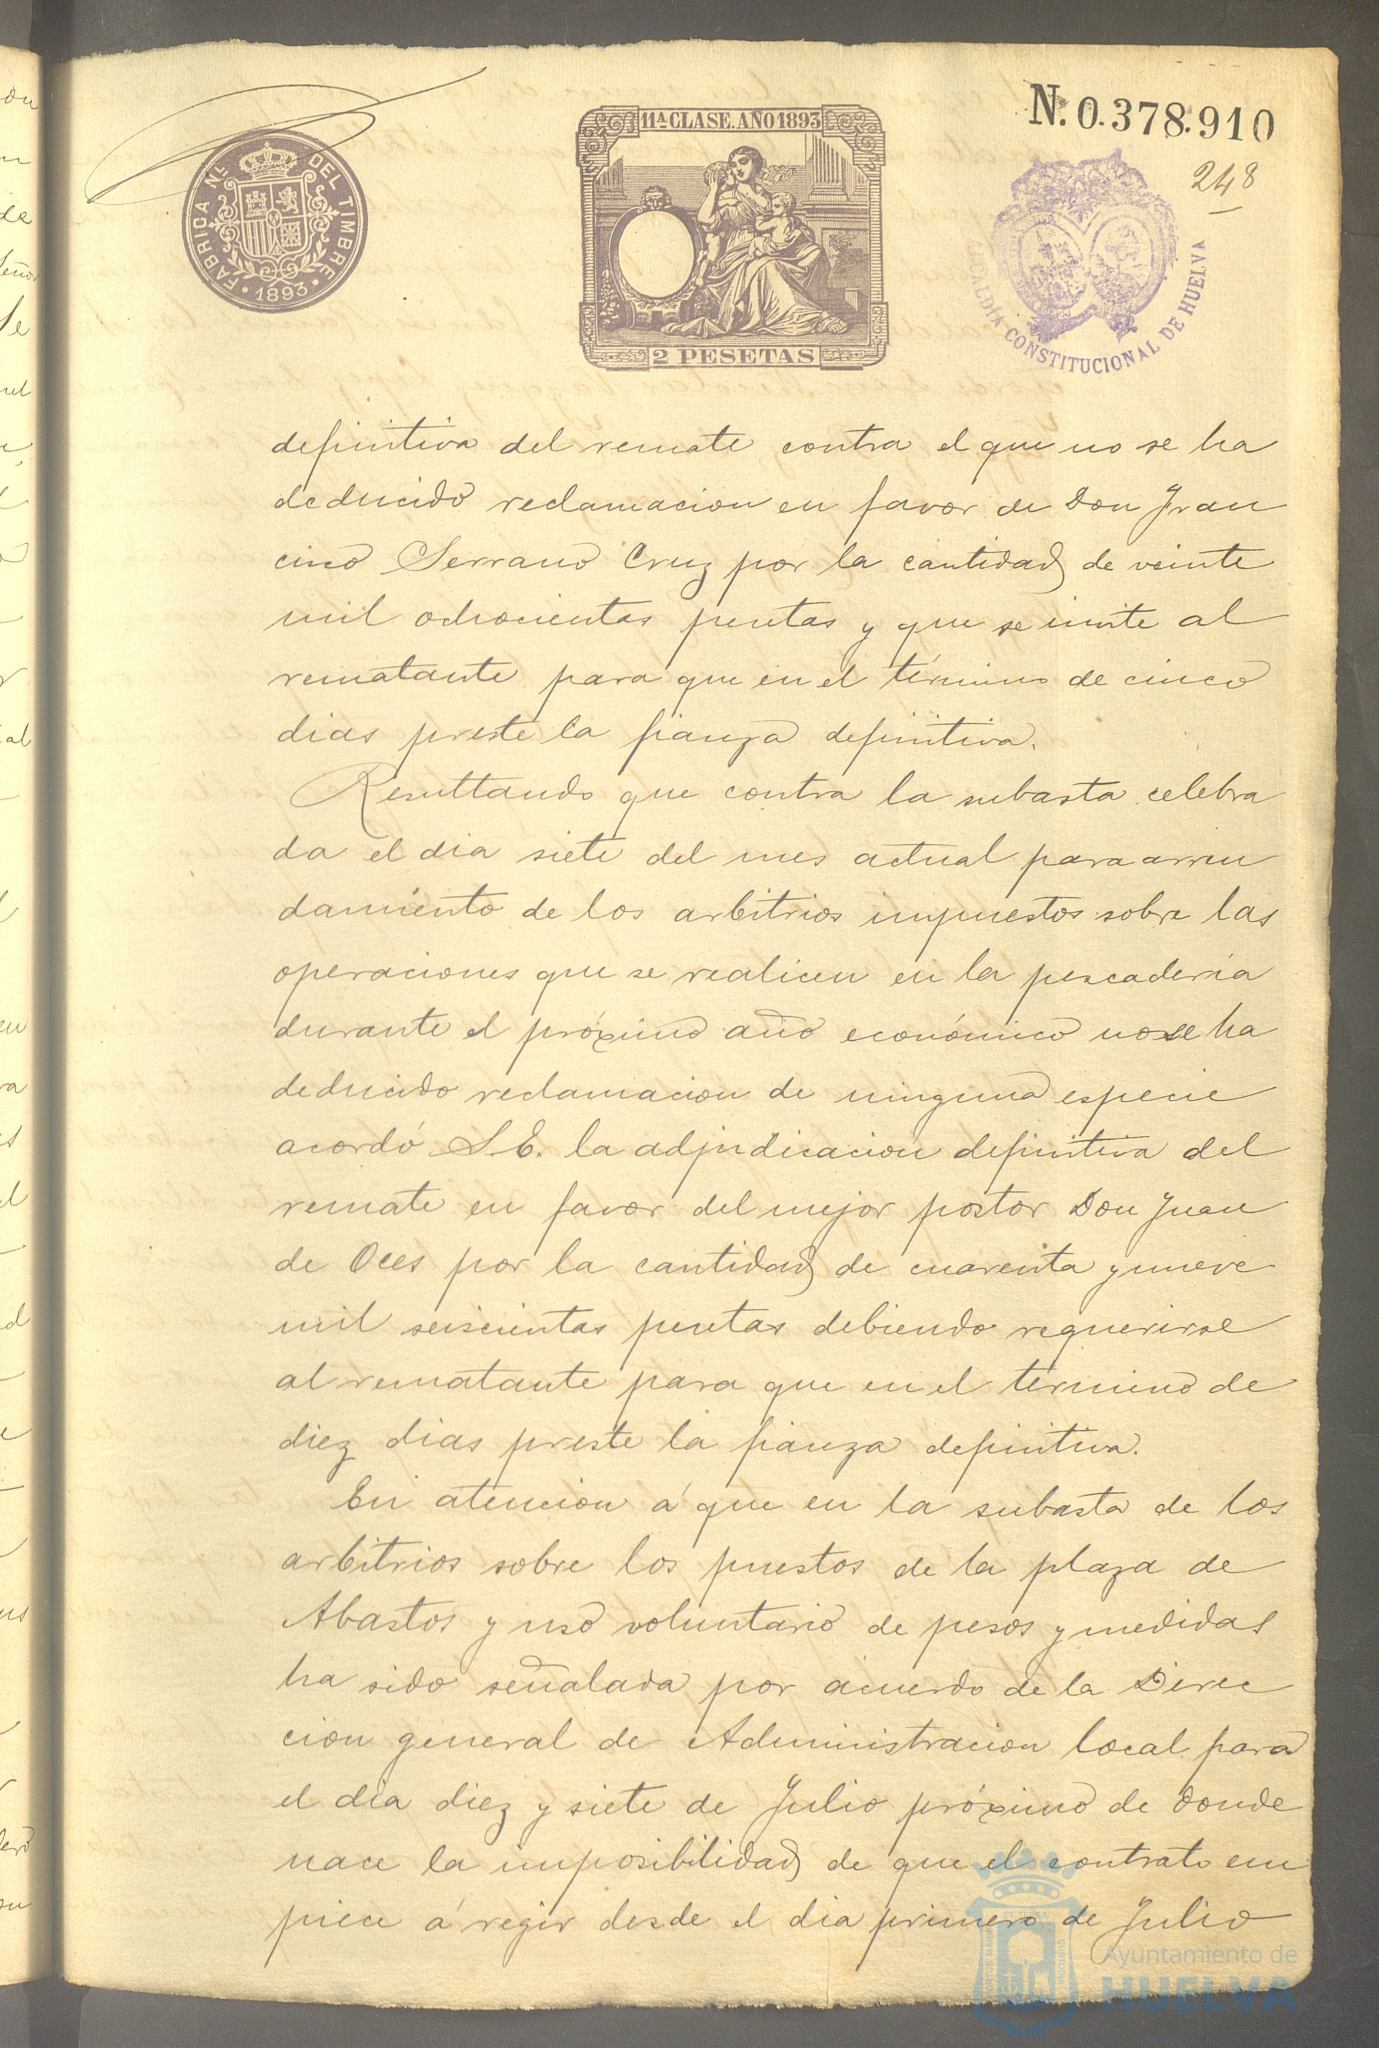 N.º 0.378.910
11ª CLASE. AÑO 1893
FABRICA Nᴸ DEL TIMBRE
1893
2 PESETAS
ALCALDIA CONSTITUCIONAL DE HUELVA
248
definitiva del remate contra el que no se ha
deducido reclamacion en favor de Don Fran
cisco Serrano Cruz por la cantidad de veinte
mil ochocientas pesetas y que se invite al
rematante para que en el término de cinco
dias preste la fianza definitiva.
Resultando que contra la subasta celebra
da el dia siete del mes actual para arren
damiento de los arbitrios impuestos sobre las
operaciones que se realicen en la pescaderia
durante el próximo año económico no se ha
deducido reclamacion de ninguna especie
acordó S.E. la adjudicacion definitiva del
remate en favor del mejor postor Don Juan
de Oces por la cantidad de cuarenta y nueve
mil seiscientas pesetas debiendo requerirse
al rematante para que en el término de
diez dias preste la fianza definitiva.
En atencion á que en la subasta de los
arbitrios sobre los puestos de la plaza de
Abastos y uso voluntario de pesos y medidas
ha sido señalada por acuerdo de la Direc
cion general de Administracion local para
el dia diez y siete de Julio próximo de donde
nace la imposibilidad de que el contrato em
piece á regir desde el dia primero de Julio
Ayuntamiento de
HUELVA